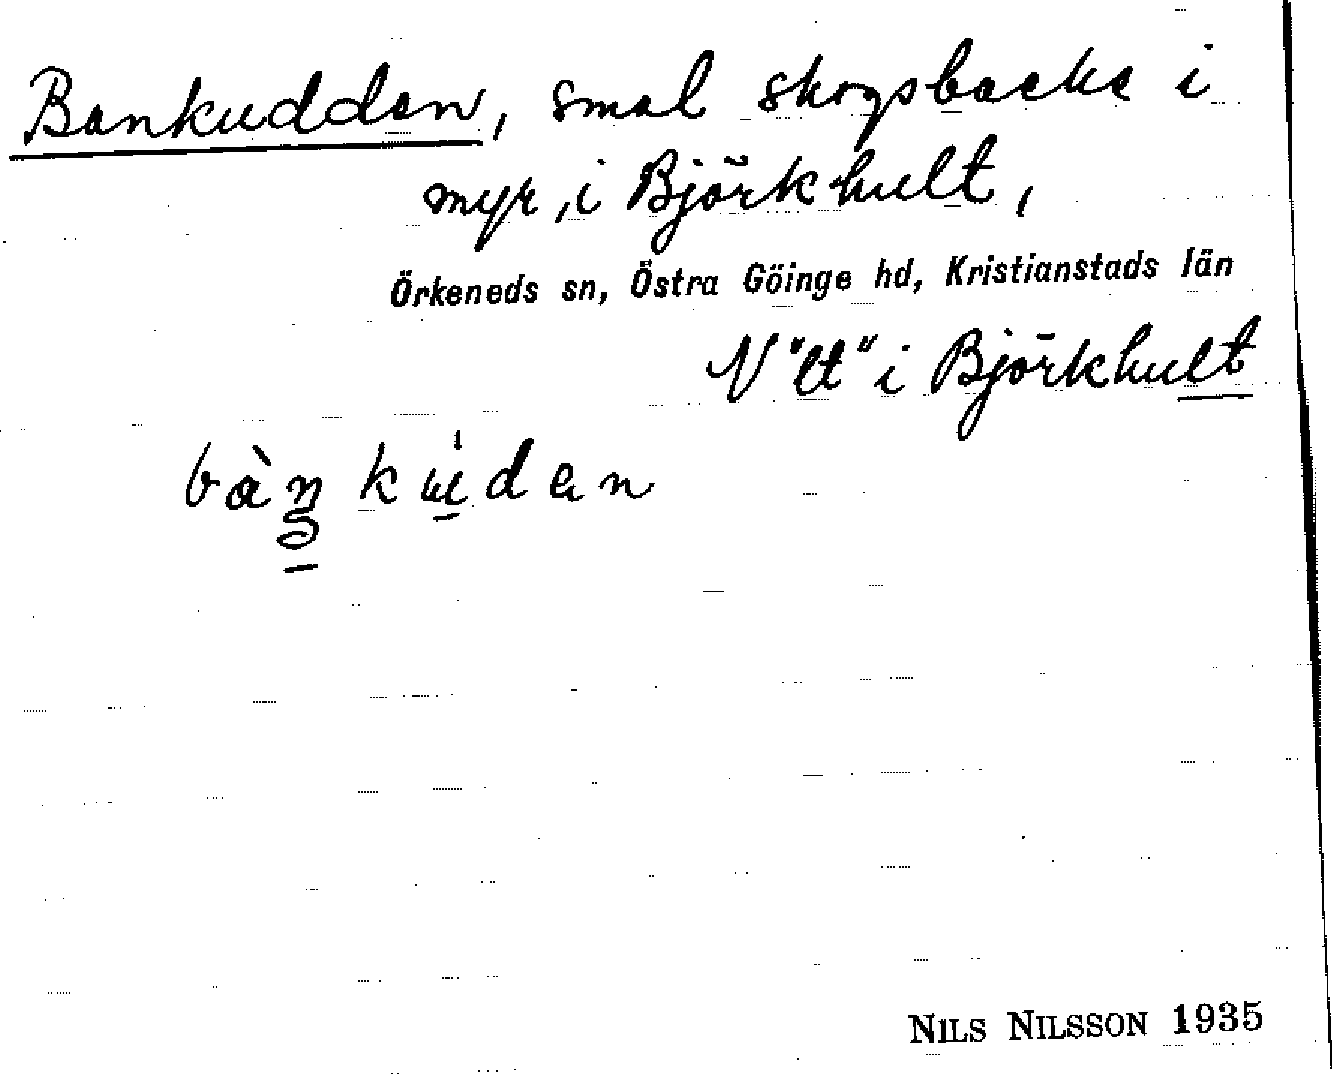 Bankuddan, smal skogsbacke i
myr, i Björkhult,
Örkeneds sn, Östra Göinge hd, Kristianstads län
N "lt" i Björkhult
NILS NILSSON 1935